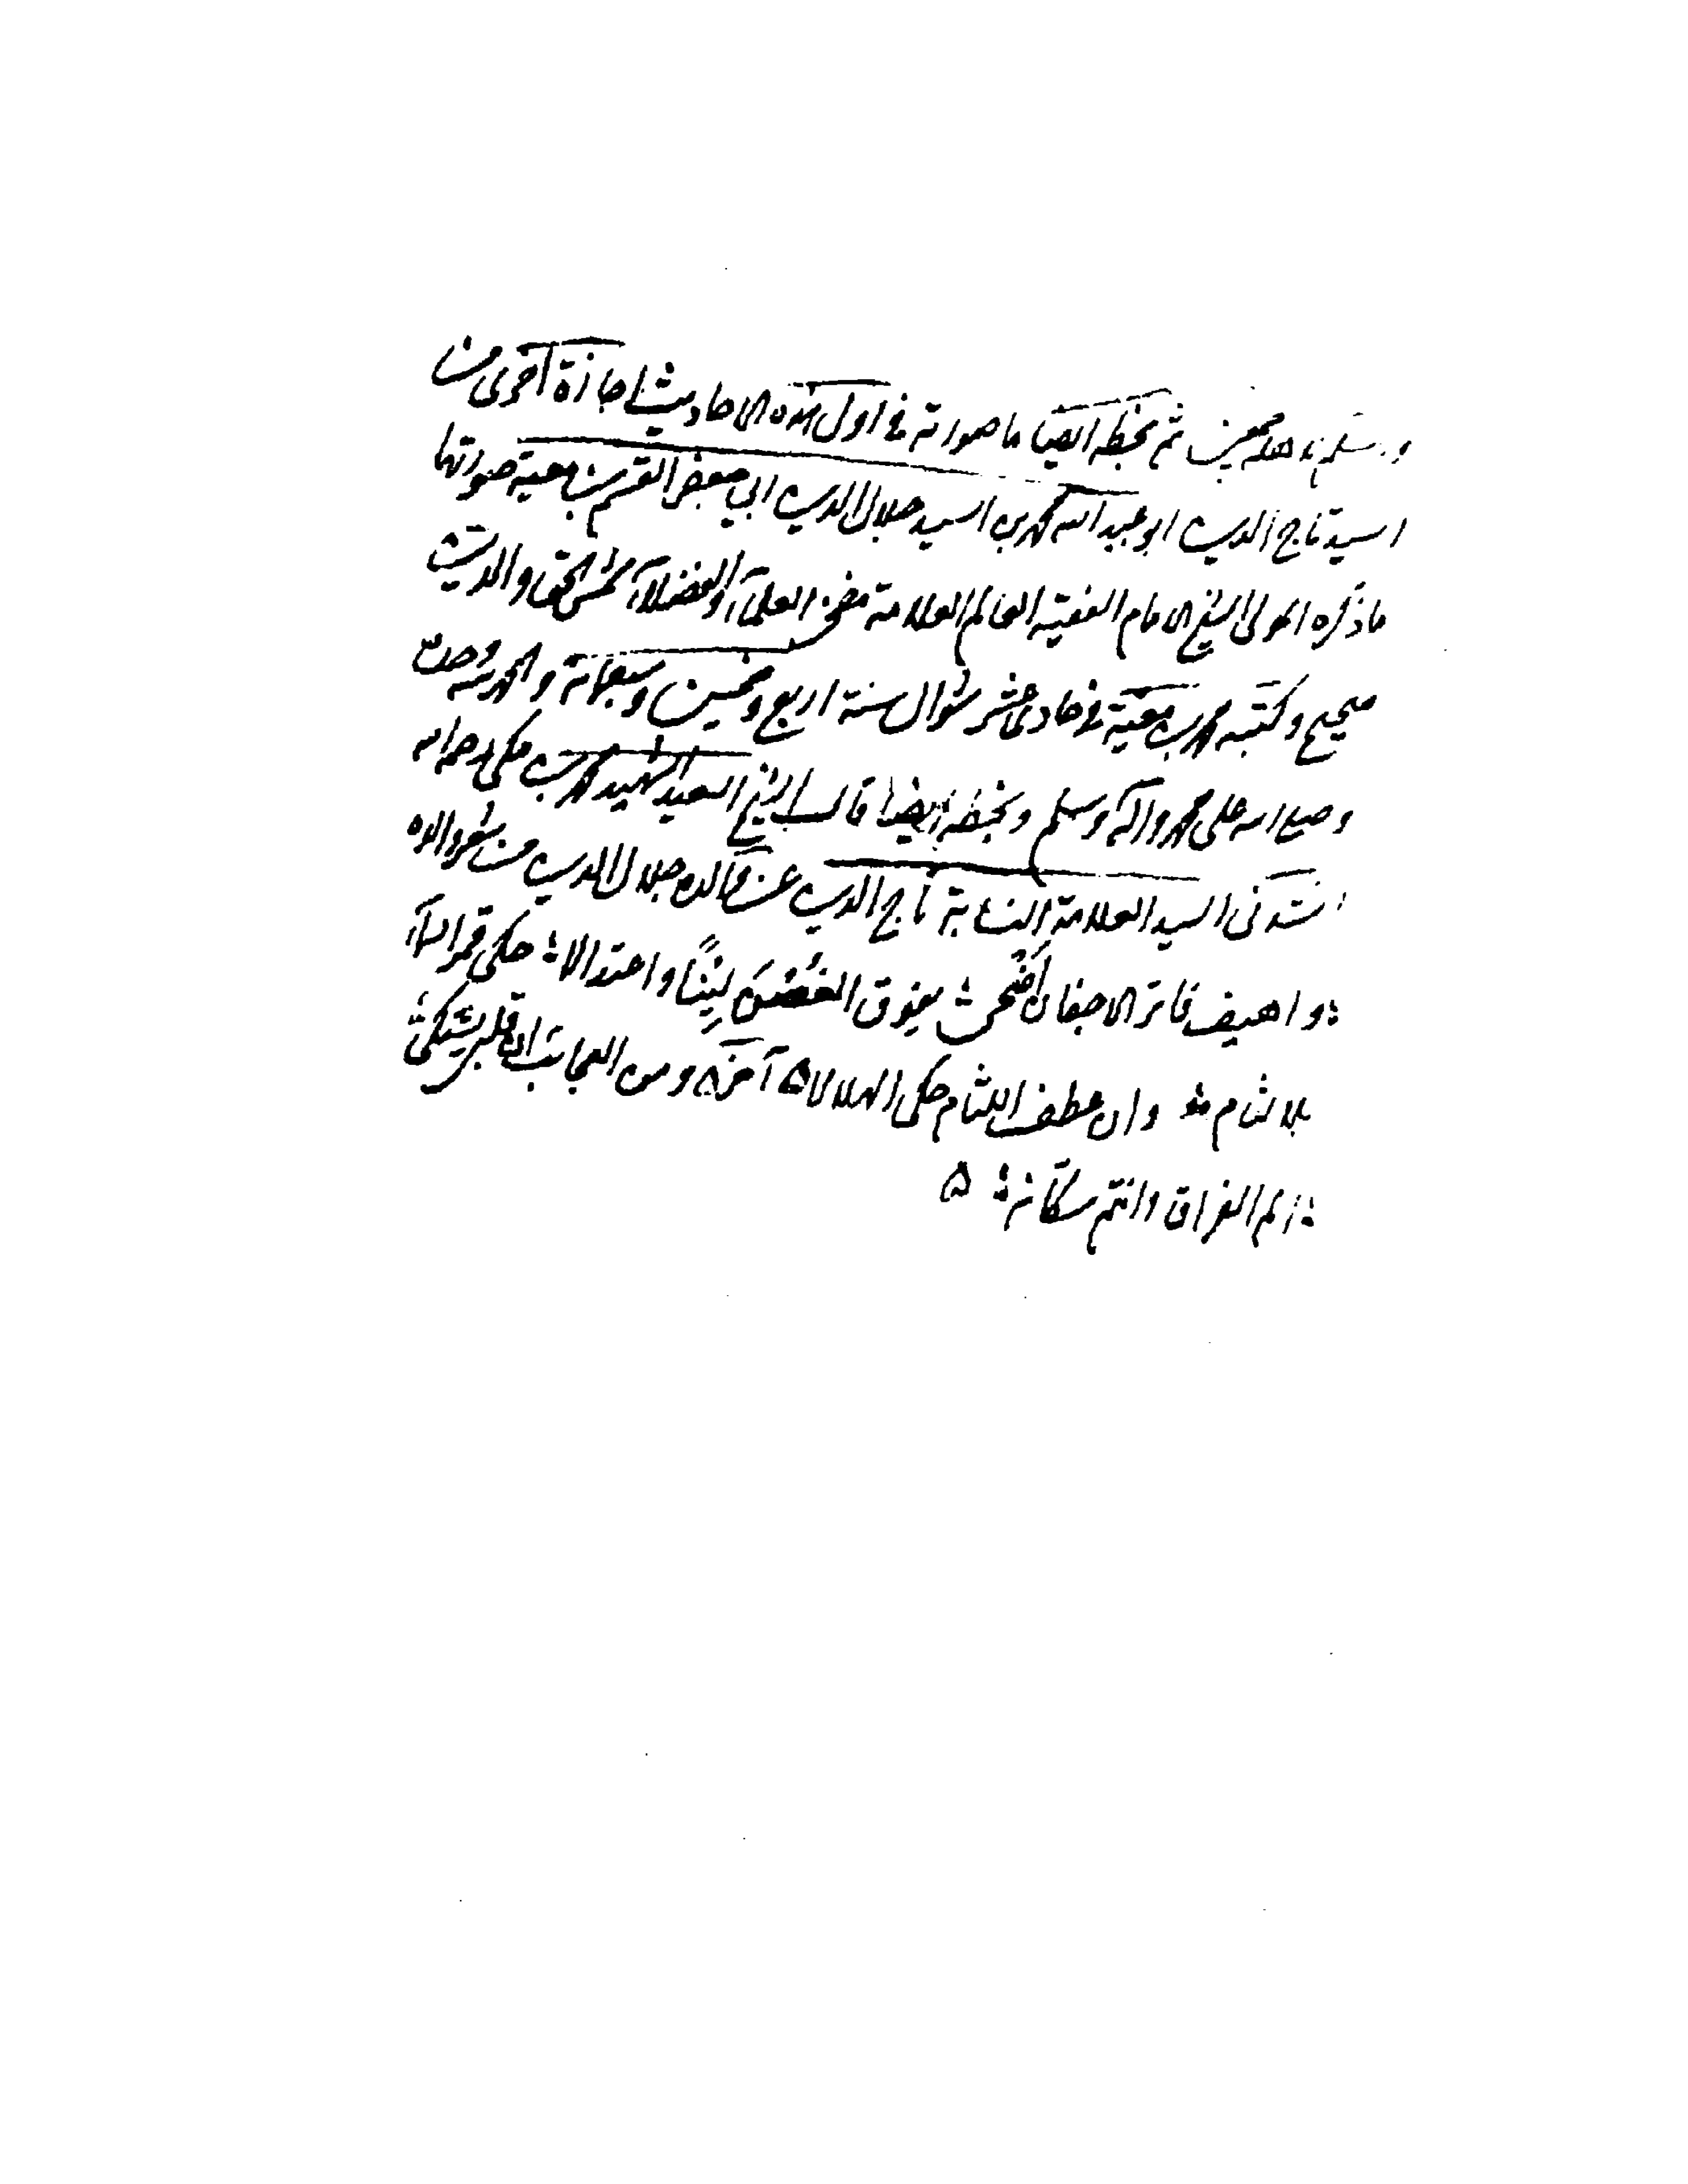 وسلم ثم بخطه ايضا ما صورته في اول هذه الاحاديث اجازة اخرى من
السيد تاج الدين ابو عبد الله محمد بن السيد جلال الدين ابي جعفر القسم بن معية صورتها
ما ذكره المولى الشيخ الامام الفقيه العالم العلامة مفخر العلمآء والفضلآء شمس الحق والدين
صحيح وكتبه محمد بن معية في حادي عشر شوال سنة اربع وخمسين وسبعمائة والحمد لله وحده
وصلى الله على محمد وآله وسلم وبخطه ايضا قال الشيخ السعيد الشهيد محمد بن مكي رحمه الله
انشدني السيد العلامة النسابة تاج الدين عن والده جلال الدين من شعر والده
واهيف فاتر الاجفان اضحى يفوق الغصن لِينًا واعتدالا حكى قمر السمآء
بلا لثام وان عطف اللثام حكى الهلالا ه آخره ومن العجائب ان قلبي يشتكي
الم الفراق وانتم سكانه ه